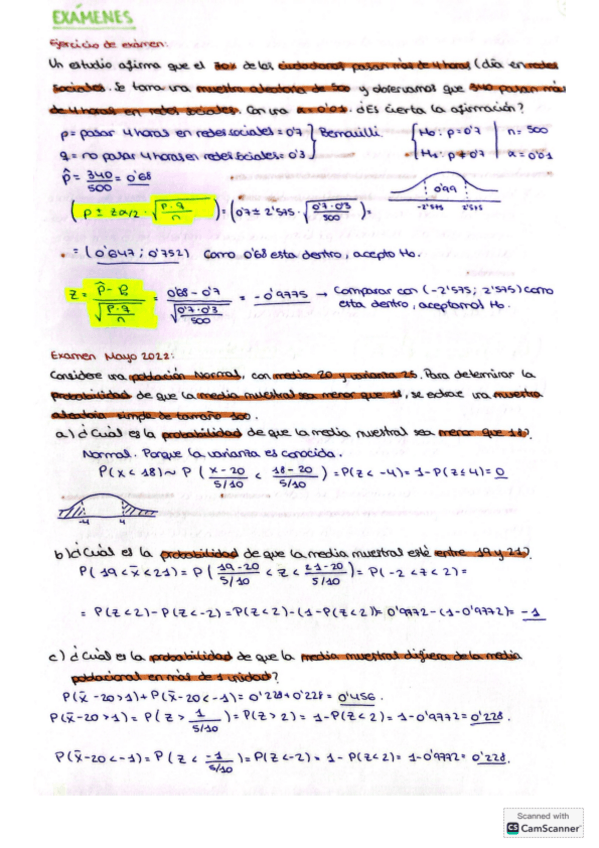 EXÁMENES
Ejercicio de examen:
Un estudio afirma que el 70% de los ciudadanos pasan más de 4 horas (día en redes
sociales. Se toma una muestra aleatoria de 500 y observamos que 340 pasan más
de 4 horas en redes sociales. Con una α=0'01. ¿Es cierta la afirmación?
p= pasar 4 horas en redes sociales = 0'7 } Bernouilli. { H0: p=0'7 | n= 500
q= no pasar 4 horas en redes sociales= 0'3 } { H1: p≠0'7 | α=0'01
p̂ = 340/500 = 0'68
0'99
-2'575 2'575
(p ± zα/2 · √(p·q/n)) = (0'7 ± 2'575 · √(0'7·0'3/500)) =
= (0'647; 0'752) Como 0'68 esta dentro, acepto H0.
z = (p̂ - P0)/√(p·q/n) = (0'68 - 0'7)/√(0'7·0'3/500) = -0'9775 → Comparar con (-2'575; 2'575) como
esta dentro, aceptamos H0.
Examen Mayo 2022:
Considere una población Normal, con media 20 y varianza 25. Para determinar la
probabilidad de que la media muestral sea menor que 18, se extrae una muestra
aleatoria simple de tamaño 100.
a) ¿Cuál es la probabilidad de que la media muestral sea menor que 18?
Normal. Porque la varianza es conocida.
P(x < 18) ~ P( (x-20)/(5/10) < (18-20)/(5/10) ) = P(z < -4) = 1-P(z ≤ 4) = 0
-4 4
b) ¿Cuál es la probabilidad de que la media muestral esté entre 19 y 21?
P(19 < x̄ < 21) = P( (19-20)/(5/10) < z < (21-20)/(5/10) ) = P(-2 < z < 2) =
= P(z < 2) - P(z < -2) = P(z < 2) - (1-P(z < 2)) = 0'9772 - (1-0'9772) = -1
c) ¿Cuál es la probabilidad de que la media muestral difiera de la media
poblacional en más de 1 unidad?
P(x̄ -20 > 1) + P(x̄ -20 < -1) = 0'228 + 0'228 = 0'456.
P(x̄ -20 > 1) = P( z > 1/(5/10) ) = P(z > 2) = 1-P(z < 2) = 1-0'9772 = 0'228.
P(x̄ -20 < -1) = P( z < -1/(5/10) ) = P(z < -2) = 1 - P(z < 2) = 1-0'9772 = 0'228.
Scanned with
CS CamScanner